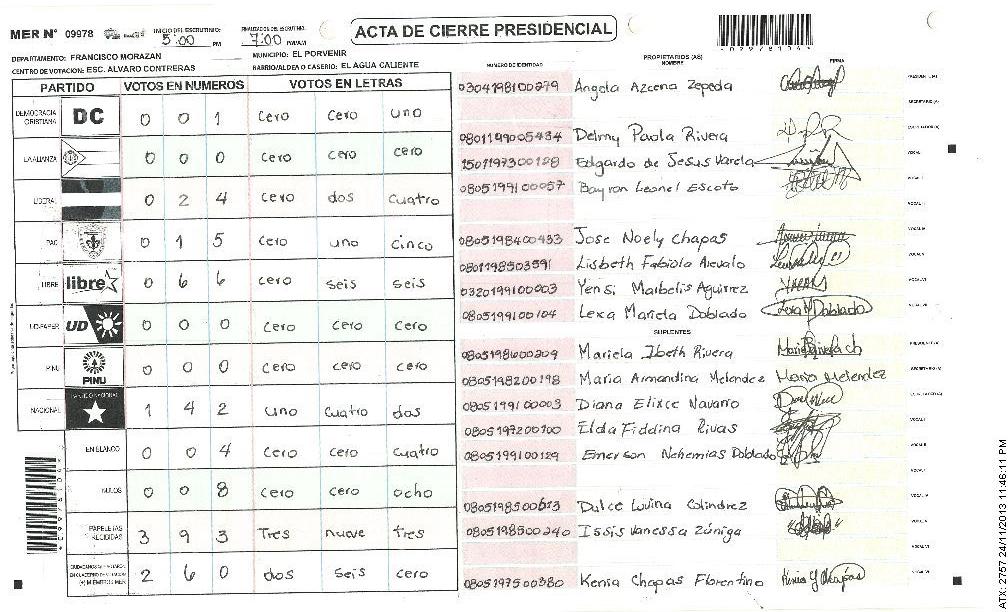 MER N° 09978 INICIO DEL ESCRUTINIO: 5:00 PM FINALIZACION DEL ESCRUTINIO: 7:00 PM/AM ACTA DE CIERRE PRESIDENCIAL
DEPARTAMENTO: FRANCISCO MORAZAN MUNICIPIO: EL PORVENIR
CENTRO DE VOTACION: ESC. ALVARO CONTRERAS BARRIO/ALDEA O CASERIO: EL AGUA CALIENTE
PARTIDO VOTOS EN NUMEROS VOTOS EN LETRAS
DEMOCRACIA CRISTIANA DC 0 0 1 cero cero uno
LA ALIANZA 0 0 0 cero cero cero
LIBERAL 0 2 4 cero dos cuatro
PAC 0 1 5 cero uno cinco
LIBRE libre 0 6 6 cero seis seis
UD-FAPER UD 0 0 0 cero cero cero
PINU PINU 0 0 0 cero cero cero
NACIONAL 1 4 2 uno cuatro dos
EN BLANCO 0 0 4 cero cero cuatro
NULOS 0 0 8 cero cero ocho
PAPELETAS RECIBIDAS 3 9 3 Tres nueve tres
2 6 0 dos seis cero
NUMERO DE IDENTIDAD PROPIETARIOS (AS) NOMBRE FIRMA
0304198100279 Angela Azcena Zepeda
0801199005434 Delmy Paola Rivera
1501197300128 Edgardo de Jesus Varela
0805199100057 Bayron Leonel Escoto
0805198400433 Jose Noely Chapas
0801198503591 Lisbeth Fabiola Arevalo
0320199100003 Yensi Marbelis Aguirrez
0805199100104 Lexa Mariela Doblado Lexa M Doblado
SUPLENTES
0805198600209 Mariela Ibeth Rivera
0805198200198 Maria Armandina Melendez Maria Melendez
0805199100003 Diana Elixce Navarro
0805197200100 Elda Fiddina Rivas
0805199100129 Emerson Nehemias Doblado
0805198500613 Dulce Luvina Colindrez
0805198500240 Issis Vanessa Zúniga
0805197500380 Kenia Chapas Florentino Kenia Y Chapas
ATX: 2757 24/11/2013 11:46:11 PM